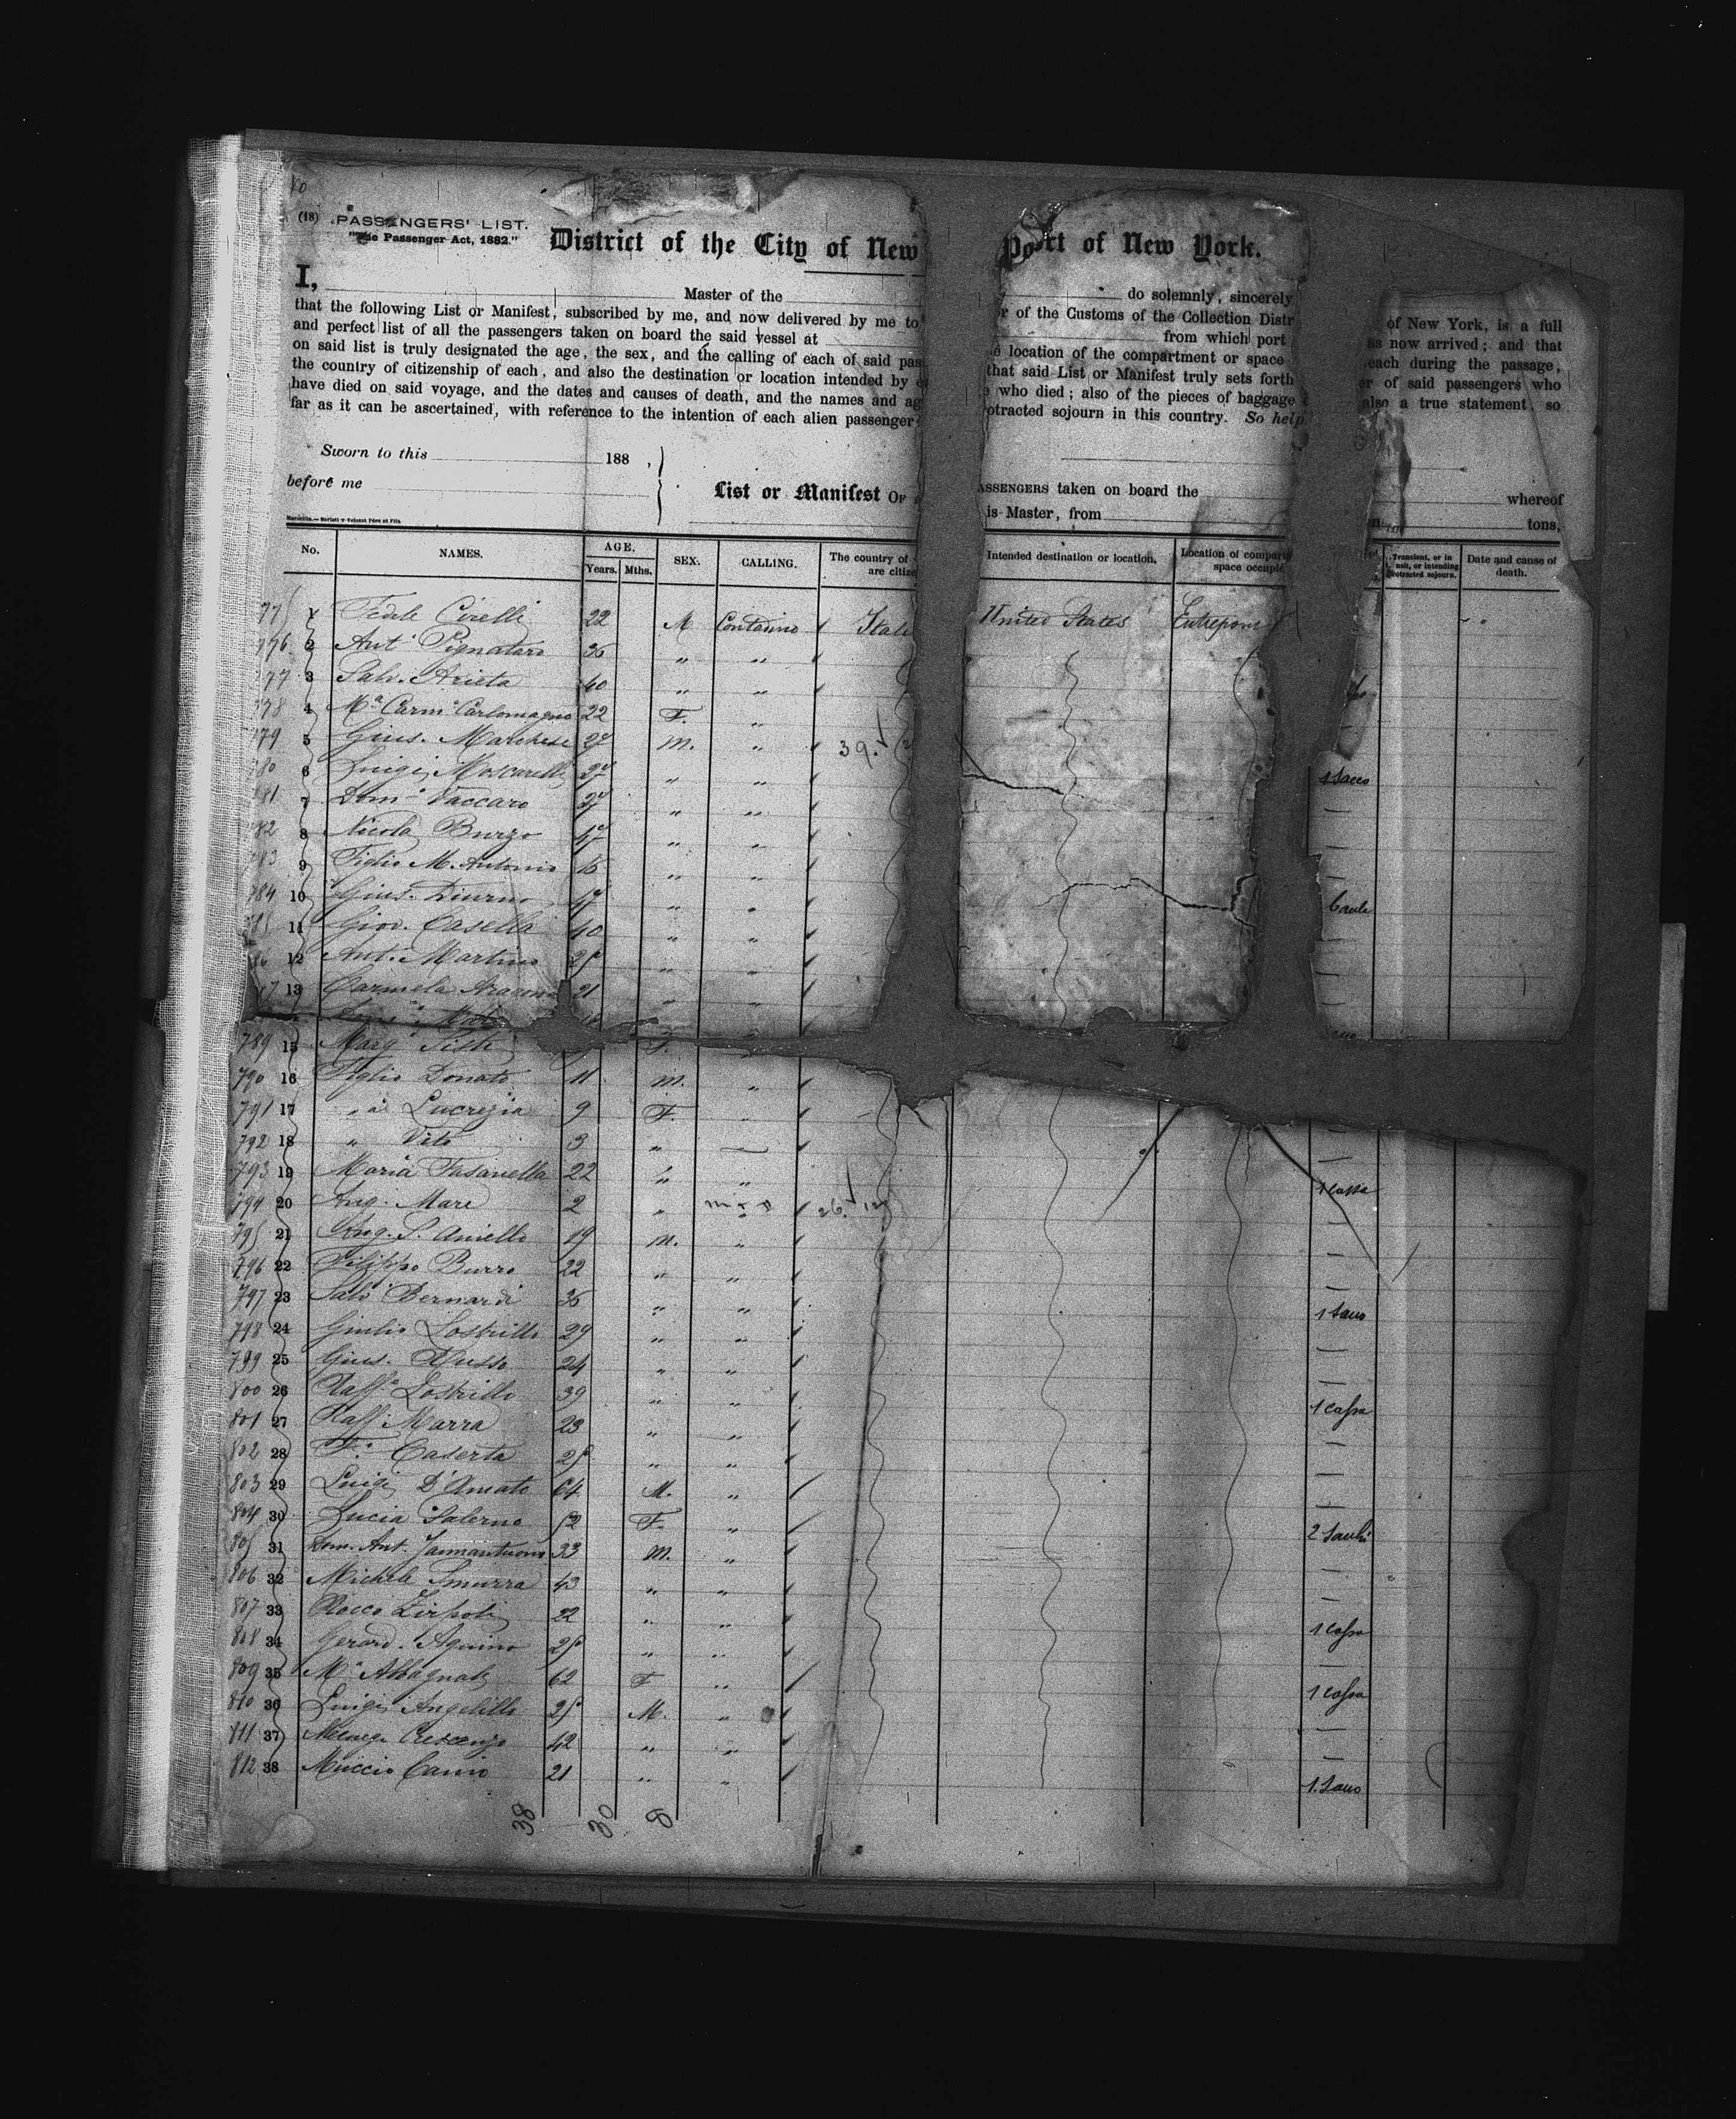 80
(18) PASSENGERS' LIST.
"The Passenger Act, 1882."
District of the City of New Port of New York.
I, Master of the do solemnly, sincerely
that the following List or Manifest, subscribed by me, and now delivered by me to r of the Customs of the Collection Distr of New York, is a full
and perfect list of all the passengers taken on board the said vessel at from which port as now arrived; and that
on said list is truly designated the age, the sex, and the calling of each of said pas e location of the compartment or space each during the passage,
the country of citizenship of each, and also the destination or location intended by that said List or Manifest truly sets forth er of said passengers who
have died on said voyage, and the dates and causes of death, and the names and ag who died; also of the pieces of baggage also a true statement, so
far as it can be ascertained, with reference to the intention of each alien passenger otracted sojourn in this country. So help
Sworn to this 188 ,
before me
List or Manifest OF ASSENGERS taken on board the whereof
is Master, from tons,
No. NAMES. AGE. Years. Mths. SEX. CALLING. The country of are citize Intended destination or location. Location of compart space occupie Transient, or in protracted sojourn. Date and cause of death.
1 Fedele Cirelli 22 M Contadino Itali United States Entrepont
776 2 Ant° Pignataro 36 " "
777 3 Salv. Arieta 40 " "
778 4 Mª Carmª Carlomagno 22 F. "
779 5 Gius. Marchese 27 M. " 39.
780 6 Luigi Moscarelli 27 " " 1 Sacco
781 7 Dom° Vaccaro 27 " "
782 8 Nicola Burzo 47 " "
783 9 Figlio M. Antonio 16 " "
784 10 Gius. Diurno 47 " " Baule
785 11 Giov. Casella 40 " "
786 12 Ant. Martino 25 " "
787 13 Carmela Aragona 21 " "
789 15 Marg. Tisti F. "
790 16 Figlio Donato 11 M. "
791 17 " a Lucrezia 9 F. "
792 18 " Vito 3 "
793 19 Maria Fasanella 22 " " 1 cassa
794 20 Ang. Mare 2 " "
795 21 Ang. S. Aniello 19 M. "
796 22 Filippo Burro 22 " "
797 23 Salv Bernardi 36 " " 1 Sacco
798 24 Giulio Lostrillo 29 " "
799 25 Gius. Russo 24 " "
800 26 Raffª Lostrillo 39 " " 1 cassa
801 27 Raff. Marra 23 " "
802 28 F. Caserta 25 " "
803 29 Luigi D'Amato 64 M. "
804 30 Lucia Salerno 52 F. " 2 Sacchi
805 31 Dom. Ant. Jannantuono 33 M. "
806 32 Michele Smurra 43 " "
807 33 Rocco Zirpoli 22 " " 1 cassa
808 34 Gerard. Aquino 25 " "
809 35 Mª Abbagnale 62 F " 1 cassa
810 36 Luigi Angelillo 25 M. "
811 37 Crescenzo 42 " "
812 38 Miccio Canio 21 " " 1 Sacco
38 30 8